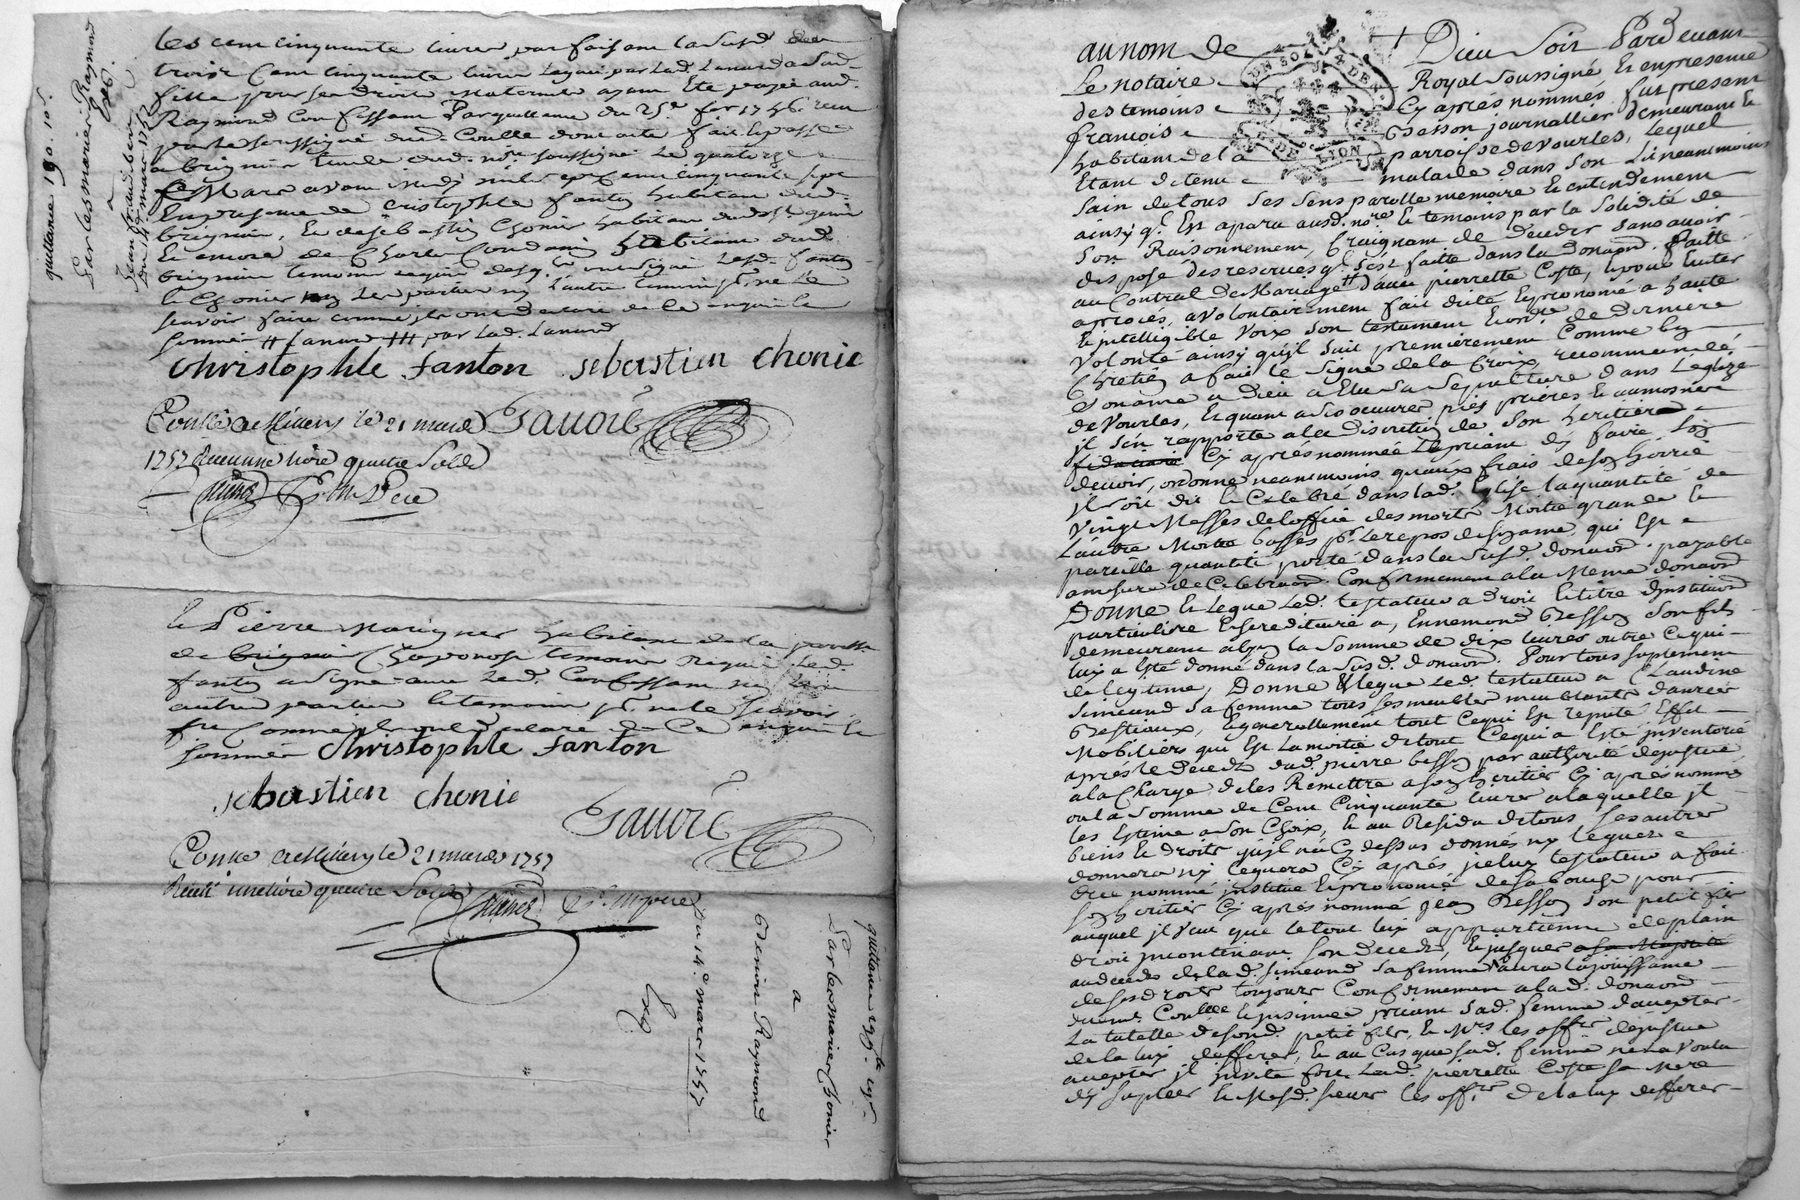 les cent cinquante livres par faisant la susd.
trois Cent cinquante livres
fille pour ses droits Maternels ayant Ete payée aud.
Raymond Confessant Par quittance du 25e fer 1756. recu
par le soussigné dud. Coulle dont acte fait et passé
a brignais Etude dud. nore soussigné Le quatorze
Mars avant midy mil sept Cent cinquante sept
En presence de Cristophle fanton habitant dud.
brignais, Et de sébastien Chonier habitant
Et encore de Charle Condamin habitant dud.
brignais temoins requis Lesd. fanton
Et Chonier
scavoir faire comme ils ont declaré de ce enquis Et
sommés par Lad. Lanard
Christophle fanton sebastien chonie
Conlle a Millery le 21 mards 1757 recu une livre quatre Solds
Sauoré
quittance 190. 10s.
Par les mariés Raymond
a
Jean
du 14e mars 1757
Exp.
Et Pierre Marignier habitant de la paroisse
de brignais Chaponost temoins Requis Led.
fanton a signé avec Led. Confessant
autres parties Et temoin pr. ne le scavoir
fre Comme ils ont declaré de Ce enquis Et
sommés Christophle fanton
sebastien chonie
Sauoré
Conlle a Millery le 21 mards 1757
Recu une livre quatre Solds
quittance
Par les mariés Chonier
a
Benoist Raymond
Du 14e mars 1757
Exp
au nom de Dieu soit Pardevant
Le notaire Royal soussigné Et en presence
des temoins Cy aprés nommés fut present
françois Besson journallier demeurant Et
habitant de la parroisse de vourles, Lequel
Etant detenu malade dans son Lit neanmoins
sain de tous ses sens parolle memoire Et entendement
ainsy qe. Est aparu aud. nore. Et temoins par la solidité de
son Raisonnement, Craignant de deceder sans avoir
dispose des reserves qe. s'est faitte dans la donaon. faitte
au Contrat de Mariage d'avec pierrette Coste, Et pour Eviter
a procés, a volontairement fait dicté Et prononcé a haute
Et intelligible voix son testament Et ordre de derniere
volonté ainsy qu'il suit premierement Comme bon
Chretien a fait le signe de la Croix, recommandé
son ame a dieu a Elu sa sepulture dans L'eglize
de Vourles, Et quant a ses oeuvres pies prieres Et aumosnes
il s'en rapporte a la discretion de son heritiere
fiduciaire Cy aprés nommée La priant d'en faire son
devoir, ordonne neanmoins qu'aux frais de son hoirie
il soit dit Et Celebré dans lad. Eglise la quantité de
vingt Messes de l'office des morts Moitié grande Et
L'autre Moitié basses pr. Le repos de son ame, qui Est a
pareille quantité porté dans la susd. donaon. payable
a mesure de Celebraon. Conformement a la Meme donaon
Donne Et Legue Led. testateur a droit Et titre d'institution
particuliere Et hereditaire a, Ennemond Besson son fils
demeurant a lyon la somme de dix livres outre Ce qui
lui a Eté donné dans la susd. donaon. Pour tous suplement
de legitime, Donne & legue Led. testateur a Claudine
Simeand sa femme tous ses meubles meublants danrées
Bestiaux, Et generallement tout Ce qui Est reputé Effet
Mobiliers qui Est La moitié de tout Ce qui a Eté inventorié
aprés le decedz dud. pierre besson par authorité de justice
a la Charge de les Remettre a son heritier Cy aprés nommé
ou la somme de Cent Cinquante livres a laquelle il
les Estime a son Choix, Et au Residu de tous ses autres
biens Et droits qu'il n'a Cy dessus donnés ny legués
donnera ny leguera Cy aprés iceluy testateur a fait
Cree nommé institue Et prononcé de sa bouche pour
son heritier Cy aprés nommé Jean Besson son petit fils
auquel il veut que le tout luy appartienne de plain
droit incontinant son decedz, Et jusques a sa Majorité
au decedz de lad. Simeand sa femme aura la jouissance
de ses droits toujours Conformement a lad. donaon
duemt. Conllée Et insinuée priant sad. femme d'accepter
La tutelle de sond. petit fils, Et Mrs. les offrs. de justice
de la luy defferer, Et au Cas que sad. femme ne la voulu
accepter il invite fort Lad. pierrette Coste sa Mere
d'y supleer Et Mesd. sieurs les offrs. de la luy defferer